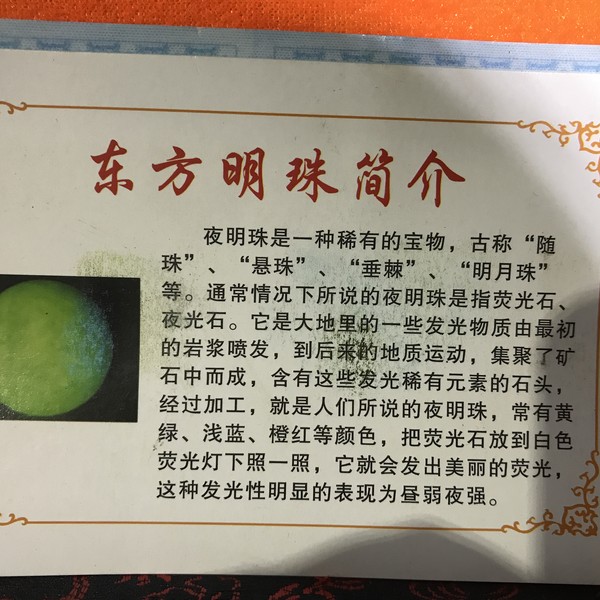 东方明珠简介
夜明珠是一种稀有的宝物，古称“随
珠”、“悬珠”、“垂棘”、“明月珠”
等。通常情况下所说的夜明珠是指荧光石、
夜光石。它是大地里的一些发光物质由最初
的岩浆喷发，到后来的地质运动，集聚了矿
石中而成，含有这些发光稀有元素的石头，
经过加工，就是人们所说的夜明珠，常有黄
绿、浅蓝、橙红等颜色，把荧光石放到白色
荧光灯下照一照，它就会发出美丽的荧光，
这种发光性明显的表现为昼弱夜强。